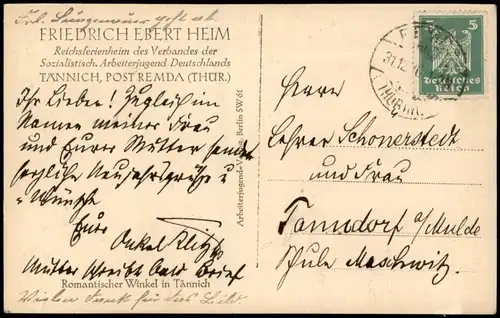 Frl. Lungmaier geht ab.
FRIEDRICH EBERT HEIM
Reichsferienheim des Verbandes der
Sozialistisch. Arbeiterjugend Deutschlands
TÄNNICH, POST REMDA (THÜR.)
Ihr Lieben! Zugleich im
Namen meiner Frau
und Eurer Mutter sendet
herzliche Neujahrsgrüße u
-Wünsche
Eure
Onkel Fritz
Mutter schreibt bald Brief
Romantischer Winkel in Tännich
Vielen Dank für das Bild.
Berlin SW 61
5 5
Deutsches
Reich
31.12.
THÜRIN
Herrn
Lehrer Schonerstedt
und Frau
Tanndorf a/Mulde
Schule Maschwitz.